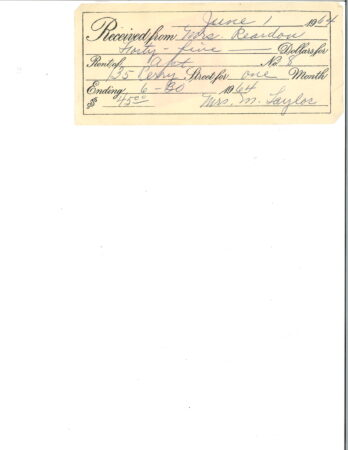 June 1 1964
Received from Mrs Reardon
Forty-five Dollars for
Rent of Apt No. 8
135 Perry Street for one Month
Ending 6-30 1964
$45.00 Mrs. M. Taylor